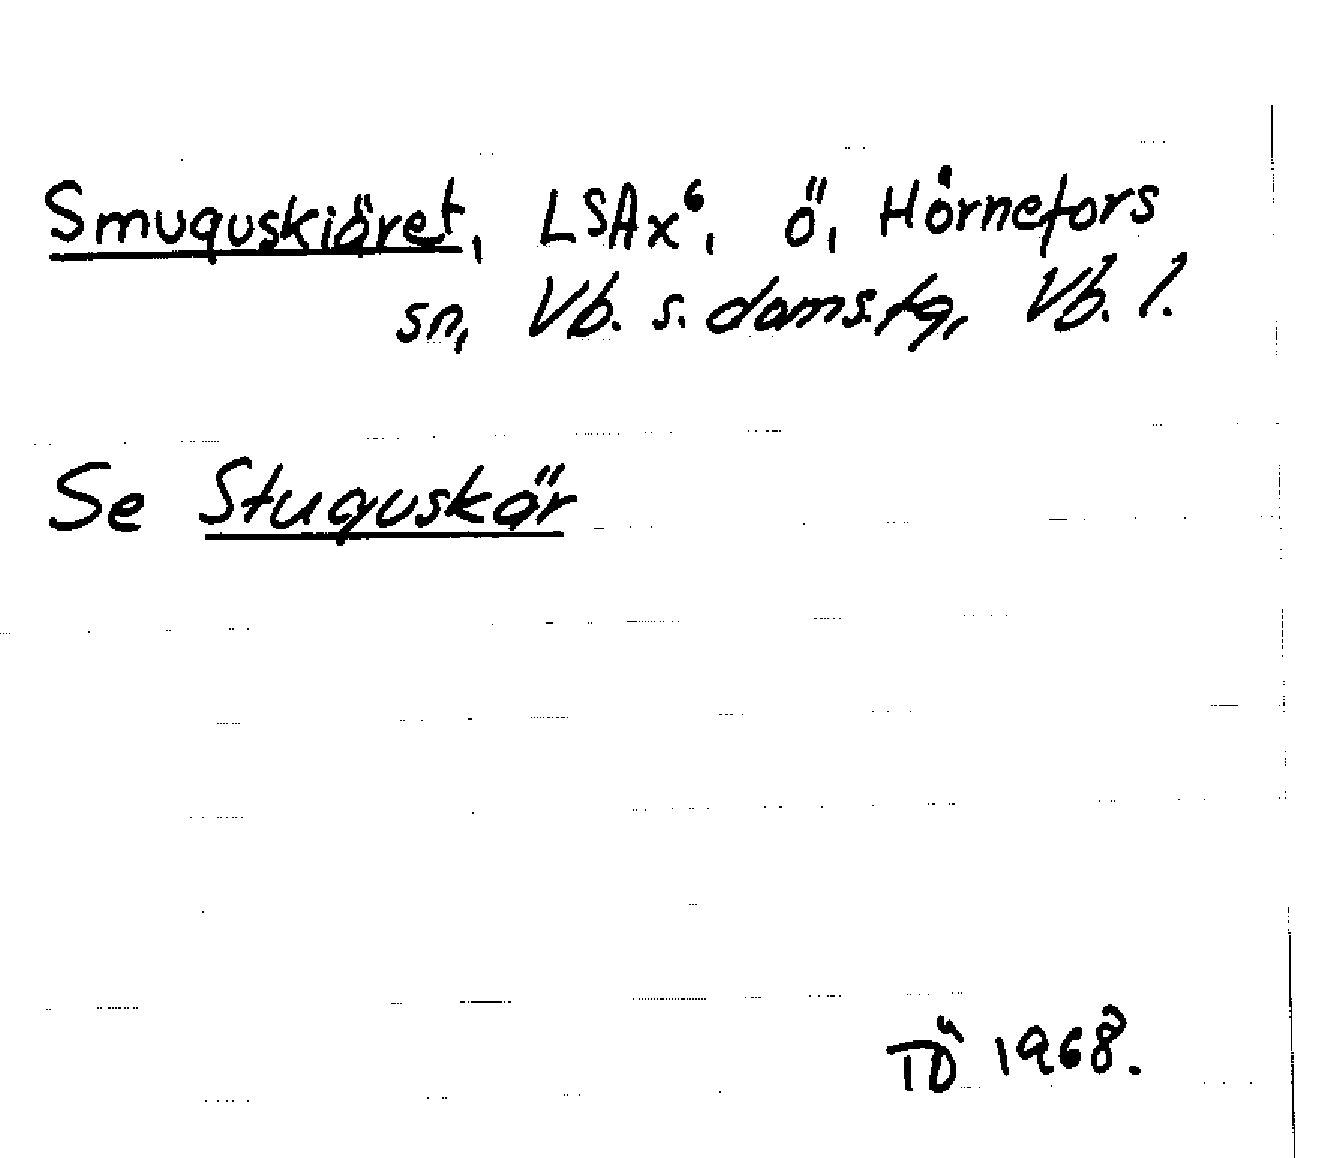 Smuguskiäret, LSAx⁶, ö, Hörnefors
sn, Vb. s. doms.tg, Vb. l.
Se Stuguskär
TÖ 1968.